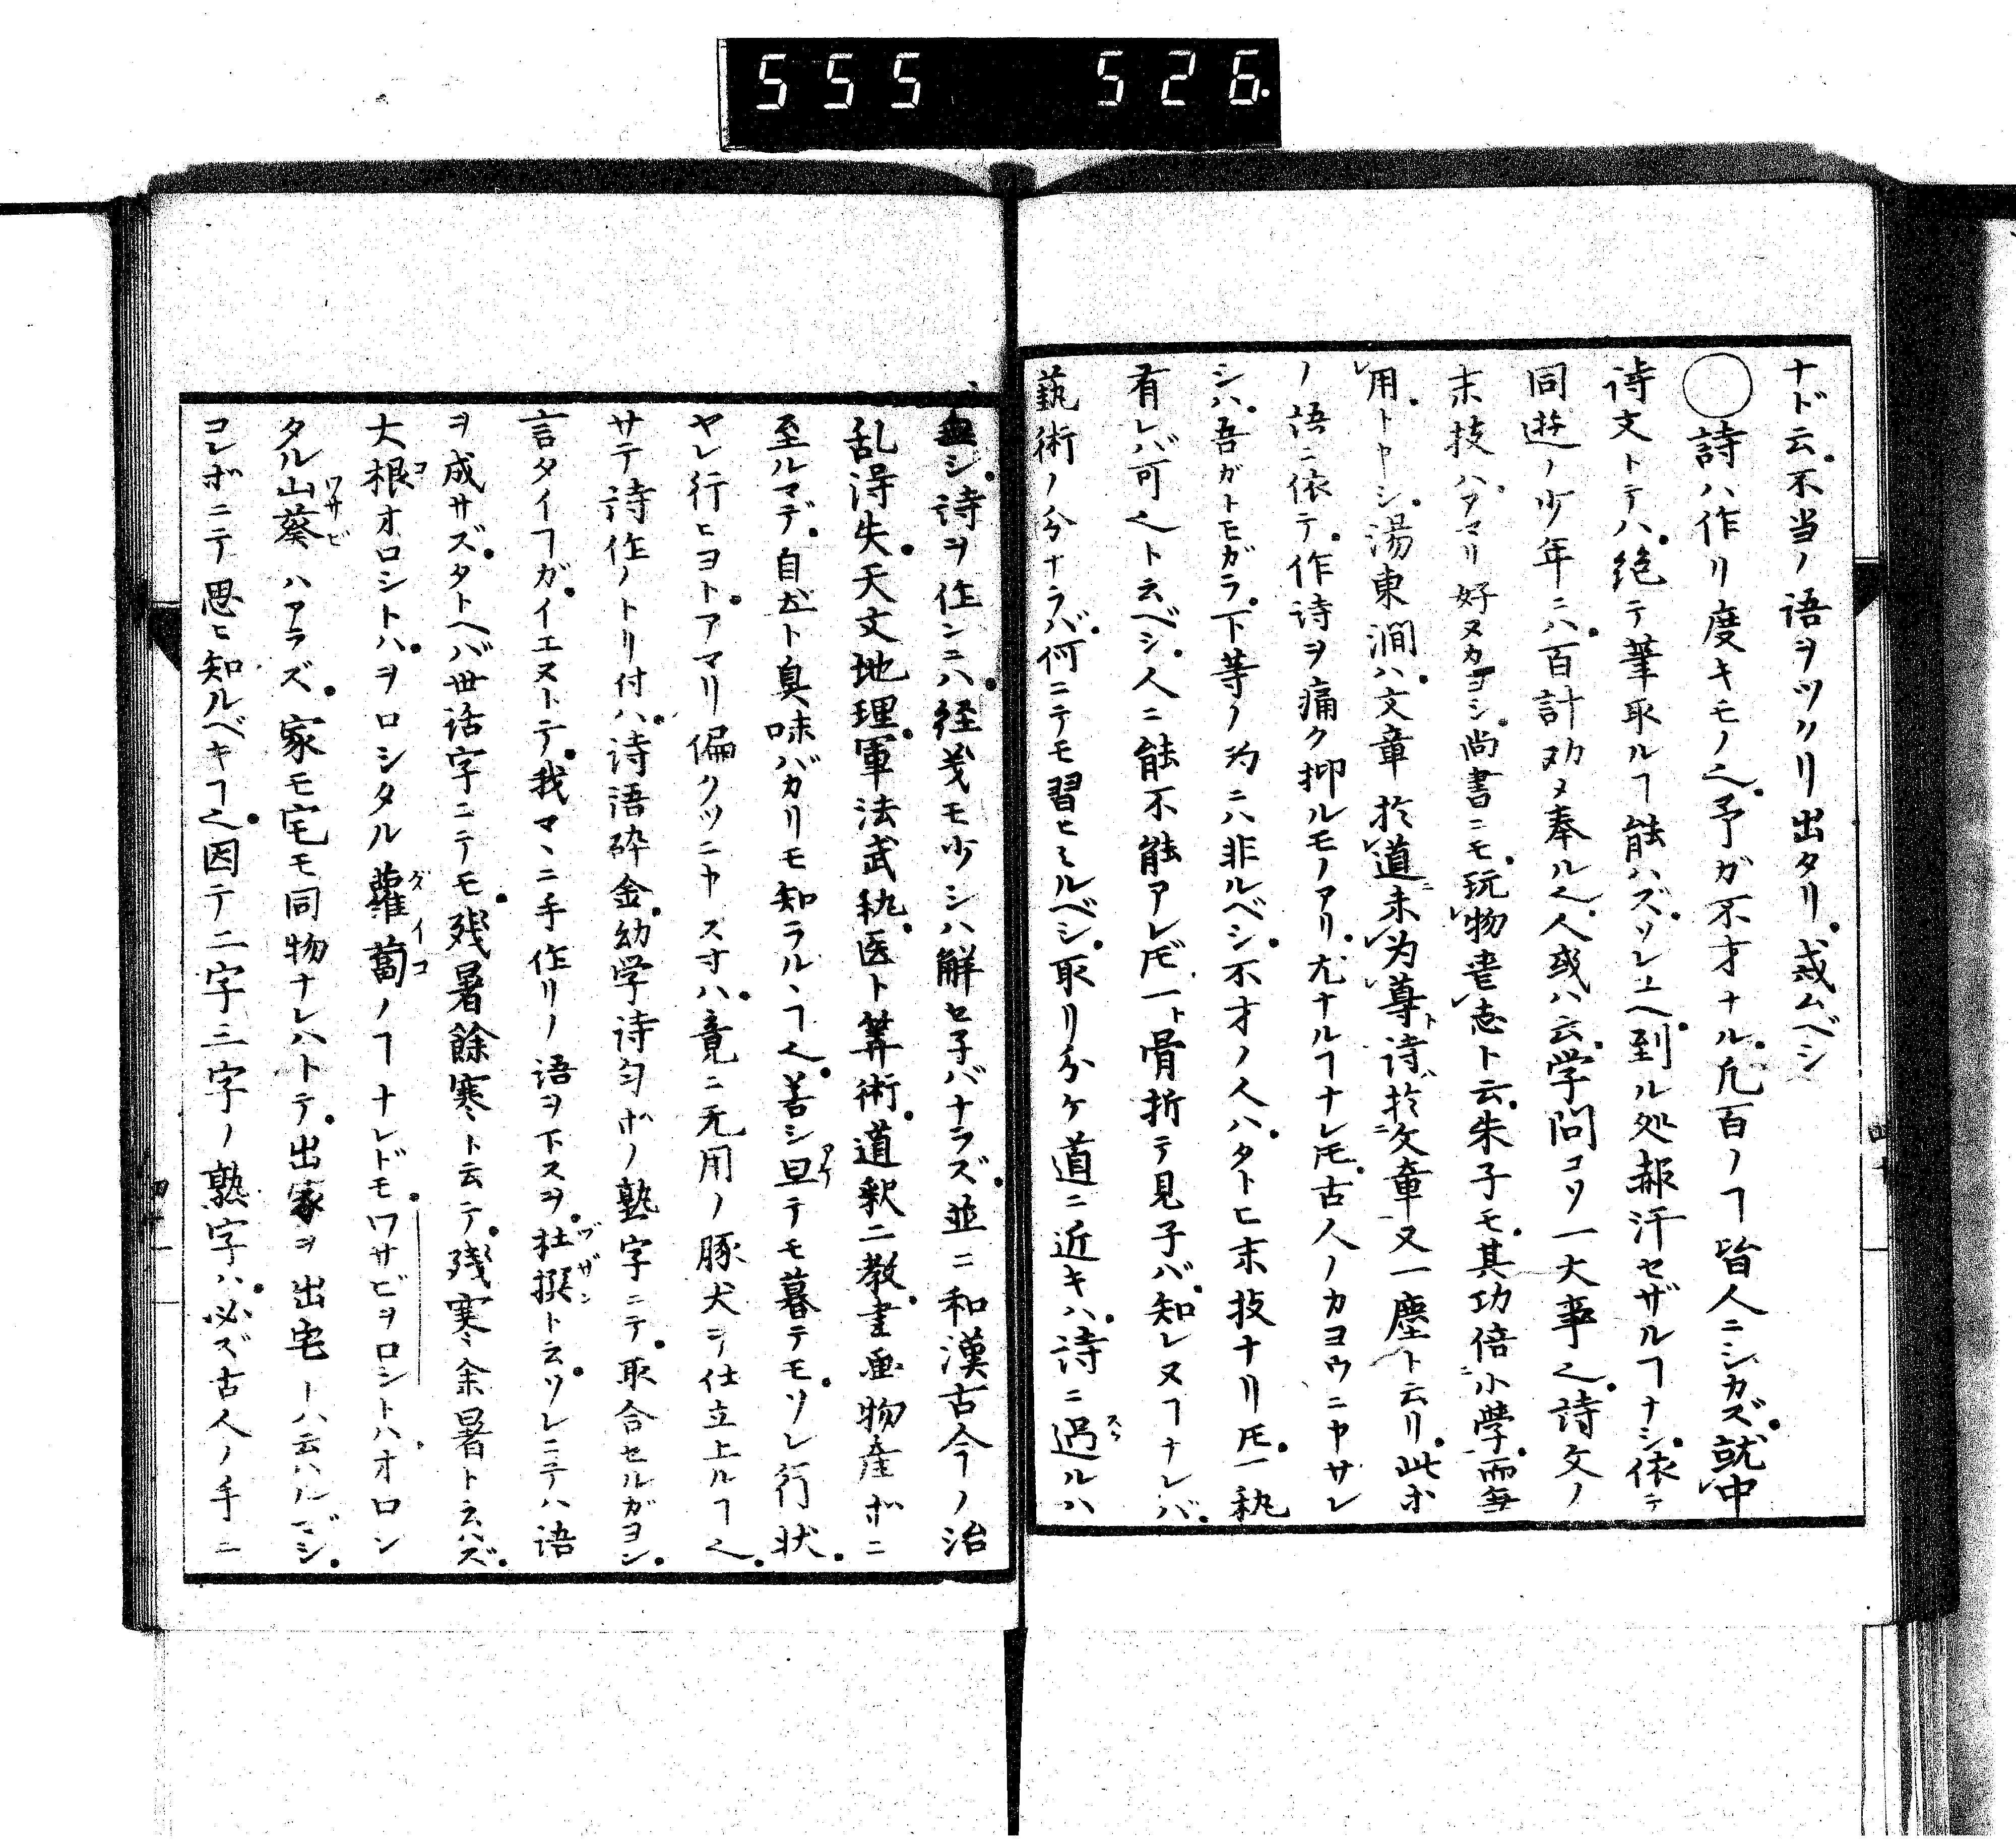 555 526.
ナド云。不当ノ語ヲツクリ出タリ。戒ムベシ
◯詩ハ作リ度キモノ也。予ガ不才ナル。凢百ノヿ皆人ニシカズ。就中
詩文トテハ。絶テ筆取ルヿ能ハズ。ソレユヘ。到ル処赧汗セザルヿナシ。依テ
同遊ノ少年ニハ。百計勧メ奉ル也。人或ハ云。学問コソ一大事也。詩文ノ
末技ハ。アマリ好ヌカヨシ。尚書ニモ。玩物喪志ト云。朱子モ。其功倍小学。而無
用。ト申シ。湯東澗ハ。文章於道未為尊。詩於文章又一塵ト云リ。此ホ
ノ語ニ依テ。作詩ヲ痛ク抑ルモノアリ。尤ナルヿナレ𪜈。古人ノカヨウニ申サレ
シハ。吾ガトモガラ。下等ノ為ニハ非ルベシ。不才ノ人ハ。タトヒ末技ナリ𪜈。一執
有レバ可也ト云ベシ。人ニ能不能アレ𪜈。一ト骨折テ見子バ。知レヌヿナレバ。
藝術ノ分ナラバ。何ニテモ習ヒミルベシ。取リ分ケ道ニ近キハ。詩ニ過ルハ
無シ。詩ヲ作ンニハ。経義モ少シハ解セ子バナラズ。並ニ和漢古今ノ治
乱得失。天文地理。軍法武執。医ト筭術。道釈二教。書画物産ホニ
至ルマデ。自ホト臭味バカリモ知ラルヽヿ也。苦シ旦テモ暮テモ。ソレ行状。
ヤレ行ヒヨト。アマリ偏クツニヤスオハ。竟ニ无用ノ豚犬ヲ仕立上ルヿ也。
サテ詩作ノトリ付ハ。詩語砕金。幼学詩匀ホノ熟字ニテ。取合セルガヨシ。
言タイヿガ。イエヌトテ。我マヽニ手作リノ語ヲ下スヲ。杜撰ト云。ソレニテハ語
ヲ成サズ。タトヘバ世話字ニテモ。残暑餘寒ト云テ。残寒余暑ト云ハズ。
大根オロシトハ。ヲロシタル蘿蔔ノヿナレドモ。ワサビヲロシトハオロシ
タル山葵ハアラズ。家モ宅モ同物ナレハトテ。出家ヲ出宅トハ云ハルマジ。
コレホニテ思ヒ知ルベキヿ也。因テ二字三字ノ熟字ハ。必ズ古人ノ手ニ